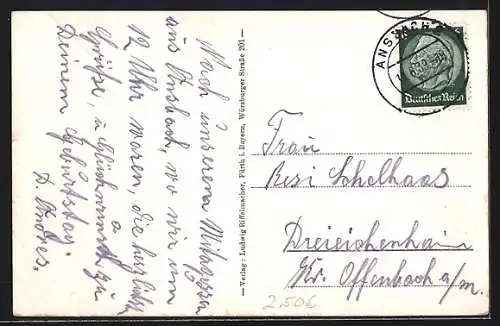 Nach unserem Mittagessen
aus Ansbach, wo wir um
12 Uhr waren, die herzlichst
Grüße, u. Glückwunsch zu
Deinem Geburtstag.
D. Andres.
Verlag: Ludwig Riffelmacher, Fürth i. Bayern, Würzburger Straße 201
ANSBACH
Deutsches Reich
Frau
Resi Schelhaas
Dreieichenhain
Kr. Offenbach a/m.
2.50€